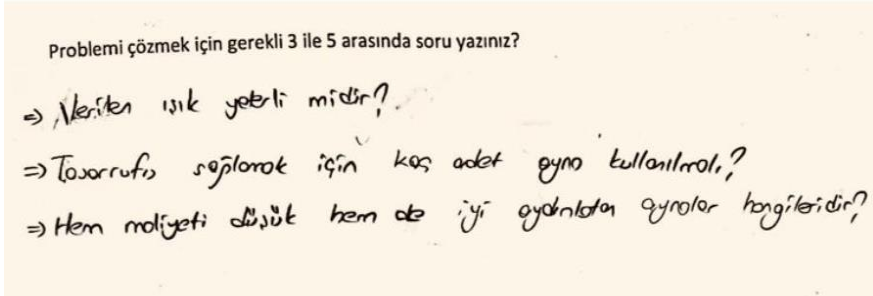 Problemi çözmek için gerekli 3 ile 5 arasında soru yazınız?
=> Verilen ışık yeterli midir?
=> Tasarrufu sağlamak için kaç adet ayna kullanılmalı?
=> Hem maliyeti düşük hem de iyi aydınlatan aynalar hangileridir?